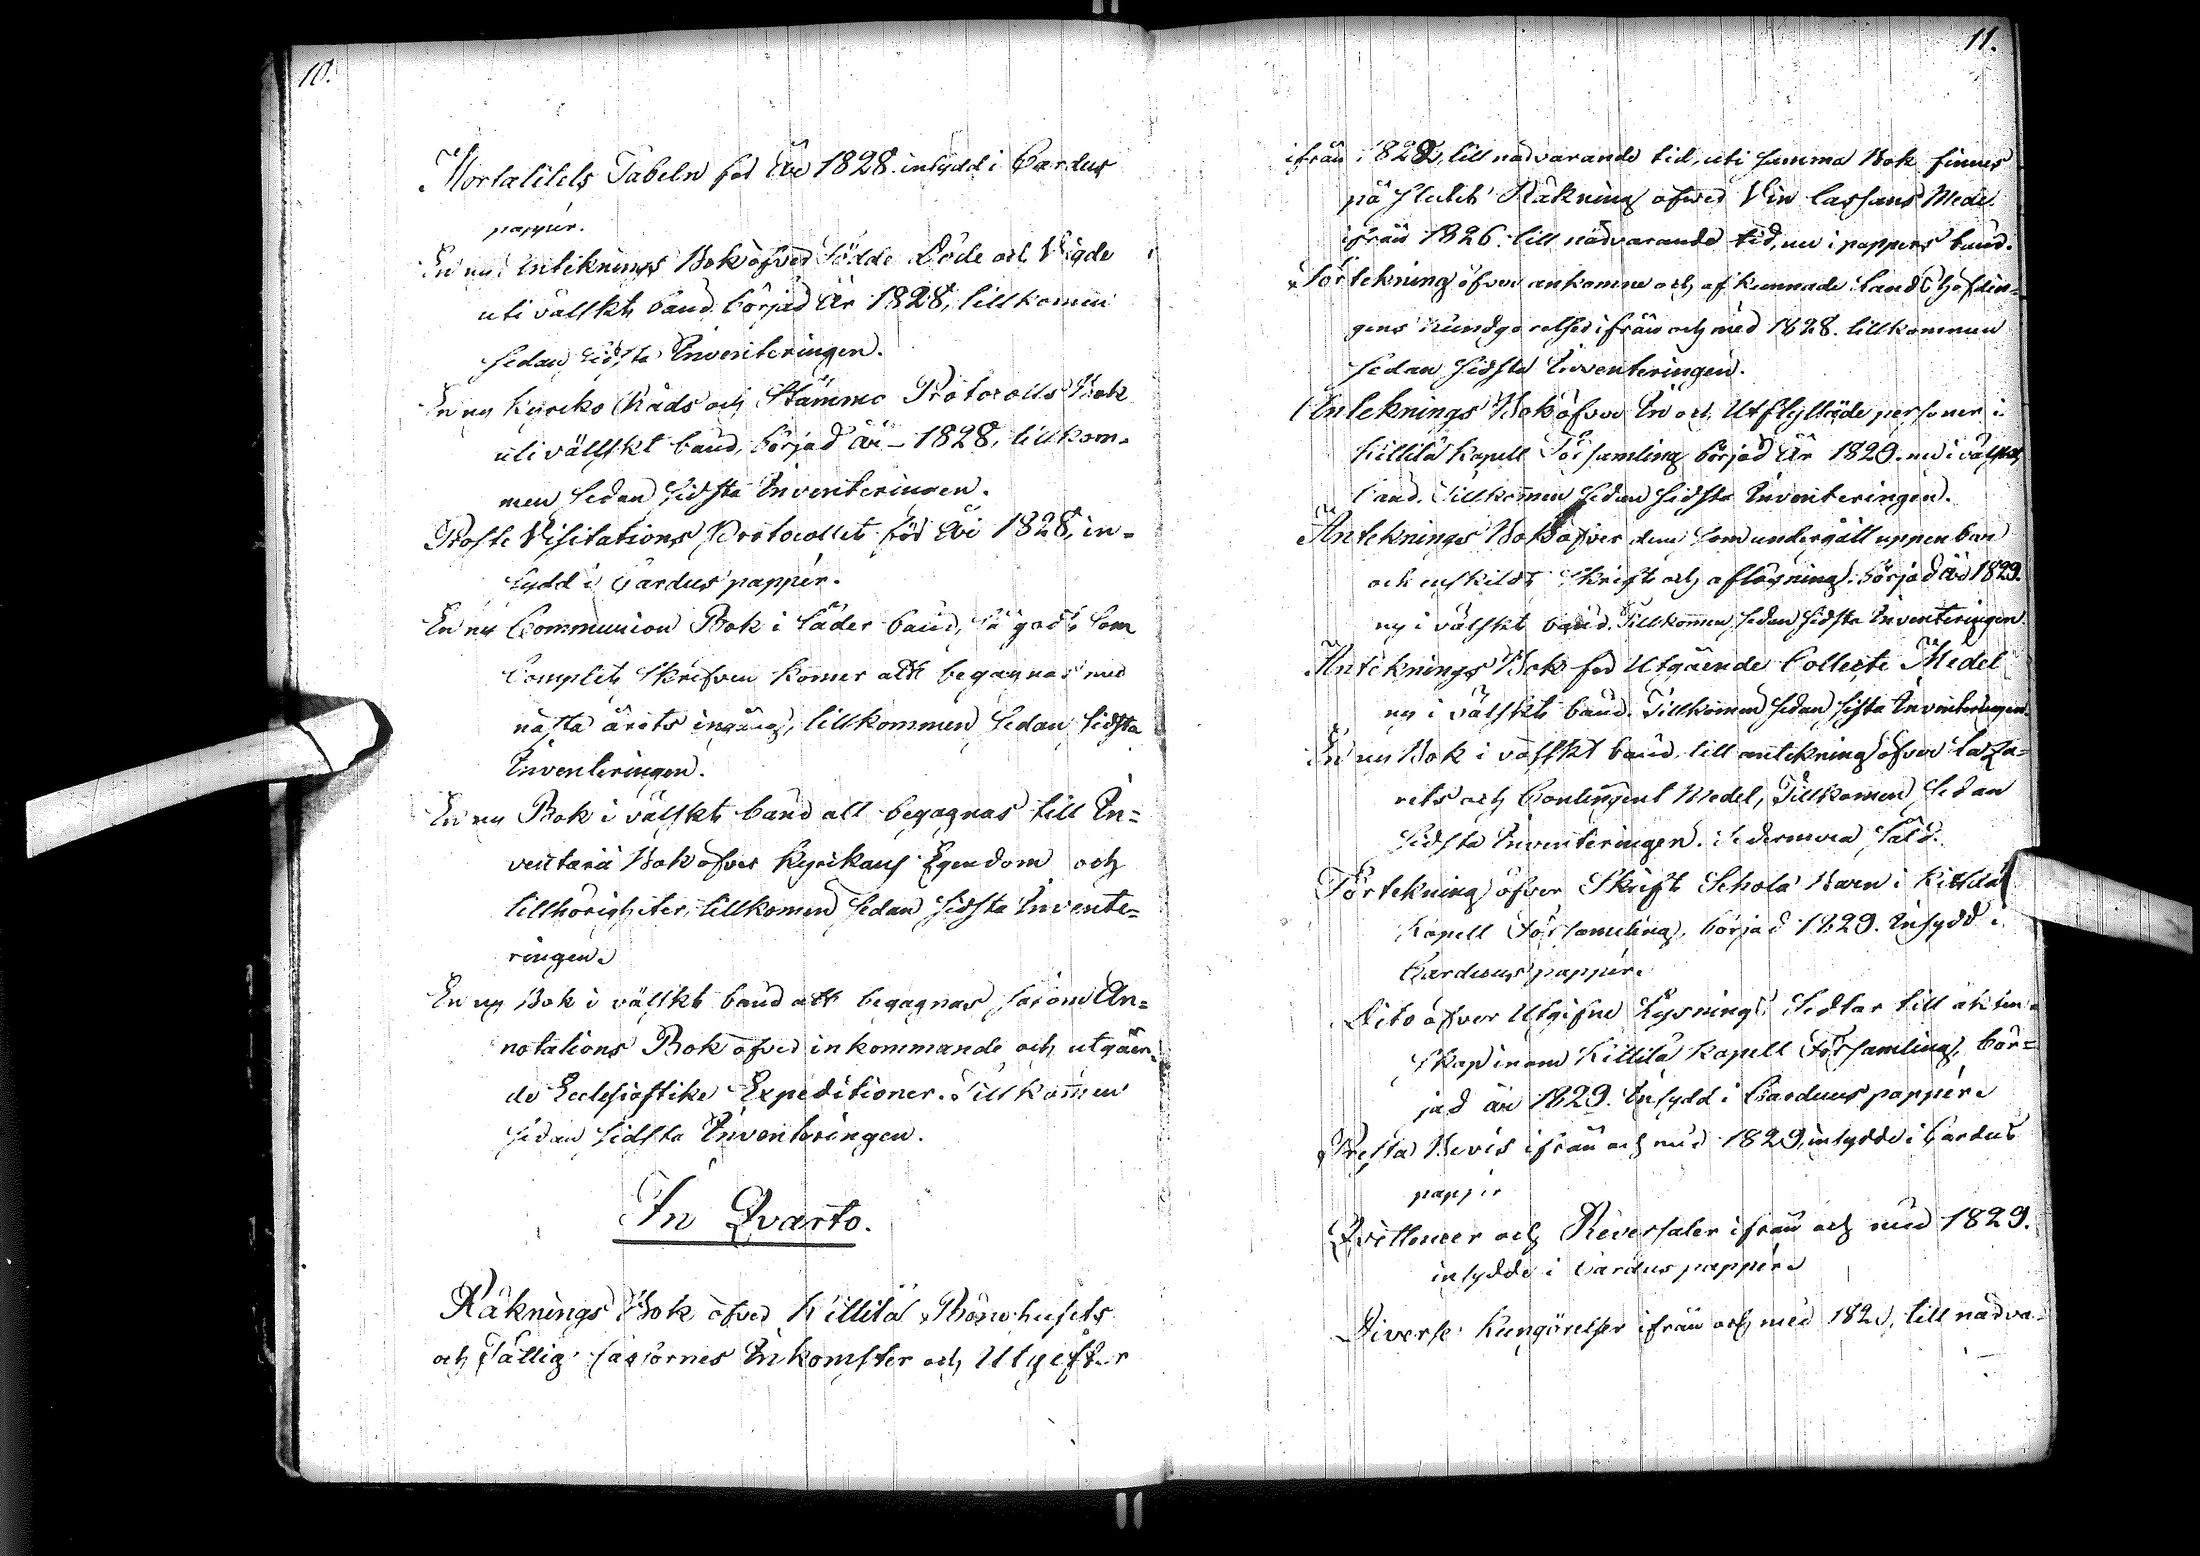 10.
Mortalitets Tabeln för År 1828. insydd i Cardus
papper.
En ny Anteknings Bok öfver Födde Döde och Vigde
uti välskt band börjad År 1828, tillkommen
sedan sidsta Inventeringen.
En ny Kyrcko Råds och Stämmo Protocolls Bok
uti välskt band, börjad År 1828, tillkom-
men sedan sidsta Inventeringen.
Proste Visitations Protocollet för År 1828, in-
sydd i Cardus papper.
En ny Communion Bok i Läder band, så godt som
Complet, skrifven komer att begagnas med
nästa årets ingång, tillkommen sedan sidsta
Inventeringen.
En ny Bok i välskt band att begagnas till In-
ventarii Bok öfver Kyrkans Egendom och
tillhörigheter, tillkomen sedan sidsta Invente-
ringen.
En ny Bok i välskt band att begagnas såsom An-
notations Bok öfver inkommande och utgåen-
de Ecclesiastike Expeditioner. Tillkommen
sedan sidsta Inventeringen.
In Qvarto.
Räknings Bok öfver Killilä Bönehusets
och Fattig Cassornes Inkomster och Utgifter
11.
ifrån 1828, till närvarande tid, uti samma Bok finnes
på slutet Räkning öfver Vin Cassans Medel
ifrån 1826. till närvarande tid, nu i pappers band.
Förtekning öfver ankomne och afkunnade Lands Höfdin-
gens Kundgörelser ifrån och med 1828. tillkommen
sedan sidsta Inventeringen.
Anteknings Bok öfver In och Utflyttade personer i
Killilä Kapell Församling börjad År 1829. ny i välskt
band. Tillkommen sedan sidsta Inventeringen.
Anteknings Bok öfver dem som undergått uppenbar
och enskildt skrift och aflösning. börjad År 1829.
ny i välskt band. Tillkommen sedan sidsta Inventeringen.
Anteknings Bok för Utgående Collecte Medel
ny i välskt band. Tillkommen sedan sista Inventeringen.
En ny Bok i välskt band till antekning öfver Laza-
rets och Contingent Medel, Tillkommen sedan
sidsta Inventeringen. sedermera såld.
Förtekning öfver Skrift Schola Barn i Killilä
Kapell Församling, börjad 1829. Insydd i
Cardus papper.
Dito öfver Utgifne Lysnings Sedlar till äkten-
skap inom Killilä Kapell Församling, bör-
jad år 1829. Insydd i Cardus papper.
Presta Bevis ifrån och med 1829, insydde i Cardus
papper
Qvittencer och Reversaler ifrån och med 1829.
insydde i Cardus papper.
Diverse Kungörelser ifrån och med till närva-